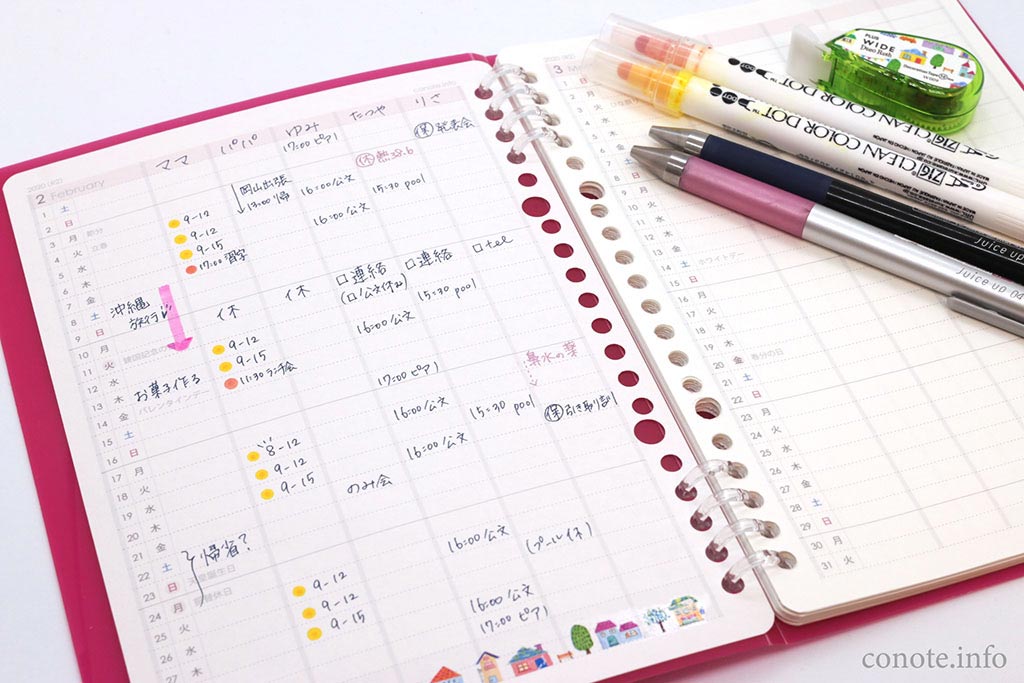 conote.info
2020 (R2)
2 February
ママ
パパ
ゆみ
たつや
りさ
17:00 ピアノ
㊡ 熱38.6
発表会
1 土
2 日
3 月 節分
4 火 立春
5 水
6 木
7 金
8 土
9 日
10 月
11 火 建国記念の
12 水
13 木
14 金 バレンタインデー
15 土
16 日
17 月
18 火
19 水
20 木
21 金
22 土
23 日 天皇誕生日
24 月 振替休日
25 火
26 水
27 木
9-12
9-12
9-15
17:00 習字
岡山出張
13:00 帰
16:00 公文
15:30 pool
16:00 公文
沖縄
旅行
休
休
□連絡
(□公文休み)
□連絡
□tel
15:30 pool
16:00 公文
9-12
9-15
11:30 ランチ会
お菓子作る
17:00 ピアノ
鼻水の薬
16:00 公文
15:30 pool
引き取り
16:00 公文
8-12
9-12
9-15
のみ会
帰省?
16:00 公文
(プール休)
9-12
9-12
9-15
16:00 公文
17:00 ピアノ
3
1 日
2 月
3 火
4 水
5 木
6 金
7 土
8 日
9 月
10 火
11 水
12 木
13 金
14 土 ホワイトデー
15 日
16 月
17 火
18 水
19 木
20 金 春分の日
21 土
22 日
23 月
24 火
25 水
26 木
27 金
28 土
29 日
30 月
31 火
PLUS
WIDE
Deco Rush
ZIG CLEAN COLOR DOT
ZIG CLEAN COLOR DOT
Juice up
Juice up 04
conote.info